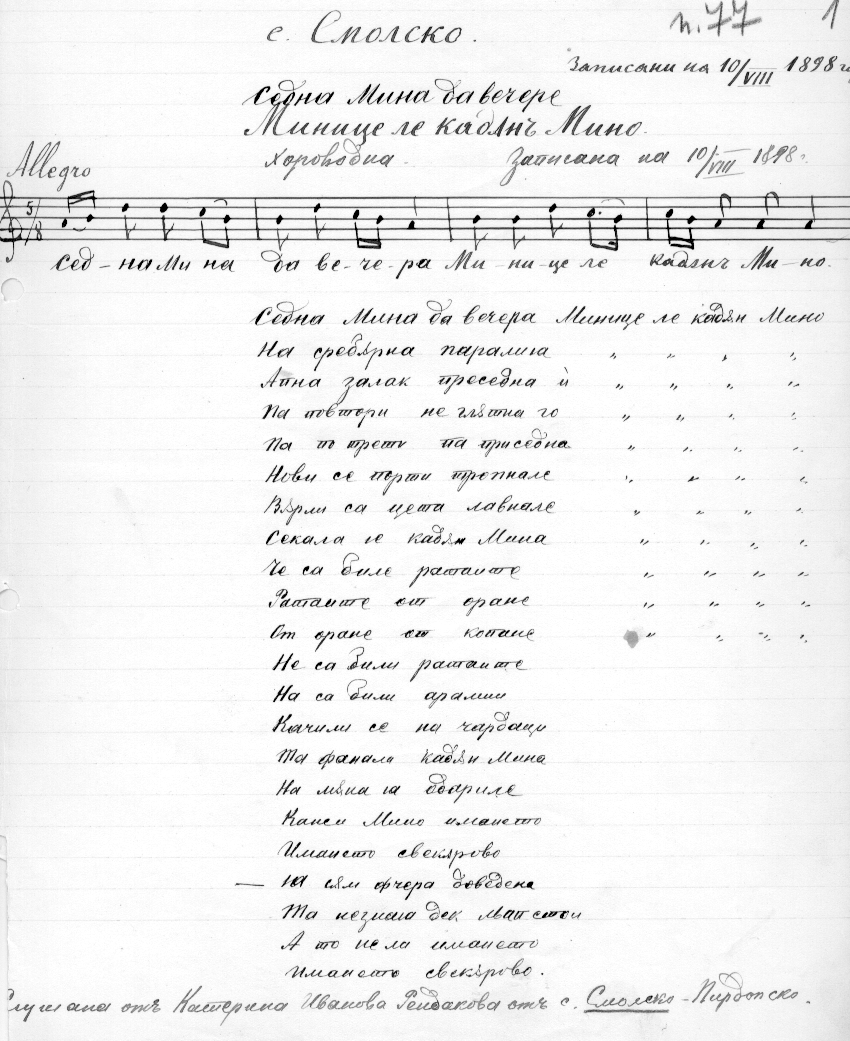 п. 77 1
с. Смолско.
Записани на 10/VIII 1898 г.
Седна Мина да вечере
Минице ле кадънъ Мино.
Хороводна. Записана на 10/VIII 1898 г.
Allegro
5/8
Сед-на Ми на да ве-че-ра Ми-ни-це ле кадънъ Ми-но.
Седна Мина да вечера Минице ле кадън Мино
На сребърна паралиа " " " "
Апна залак преседна ѝ " " " "
Па повтори не глътна го " " " "
Па по трети па приседна " " " "
Нови се порти тропнале " " " "
Върли са цета лавнале " " " "
Секала е кадън Мина " " " "
Че са биле ратаите " " " "
Ратаите от оране " " " "
От оране от копане " " " "
Не са били ратаите
На са били арамии
Качили се на чардаци
Та фанали кадън Мина
На мъка ја одариле
Кажи Мино имането
Имането свекърово
— Ја съм фчера доведена
Та незнаа дек стои
А то не ла имането
Имането свекърово.
Слушана отъ Катерина Иванова Рендакова отъ с. Смолско - Пирдопско.